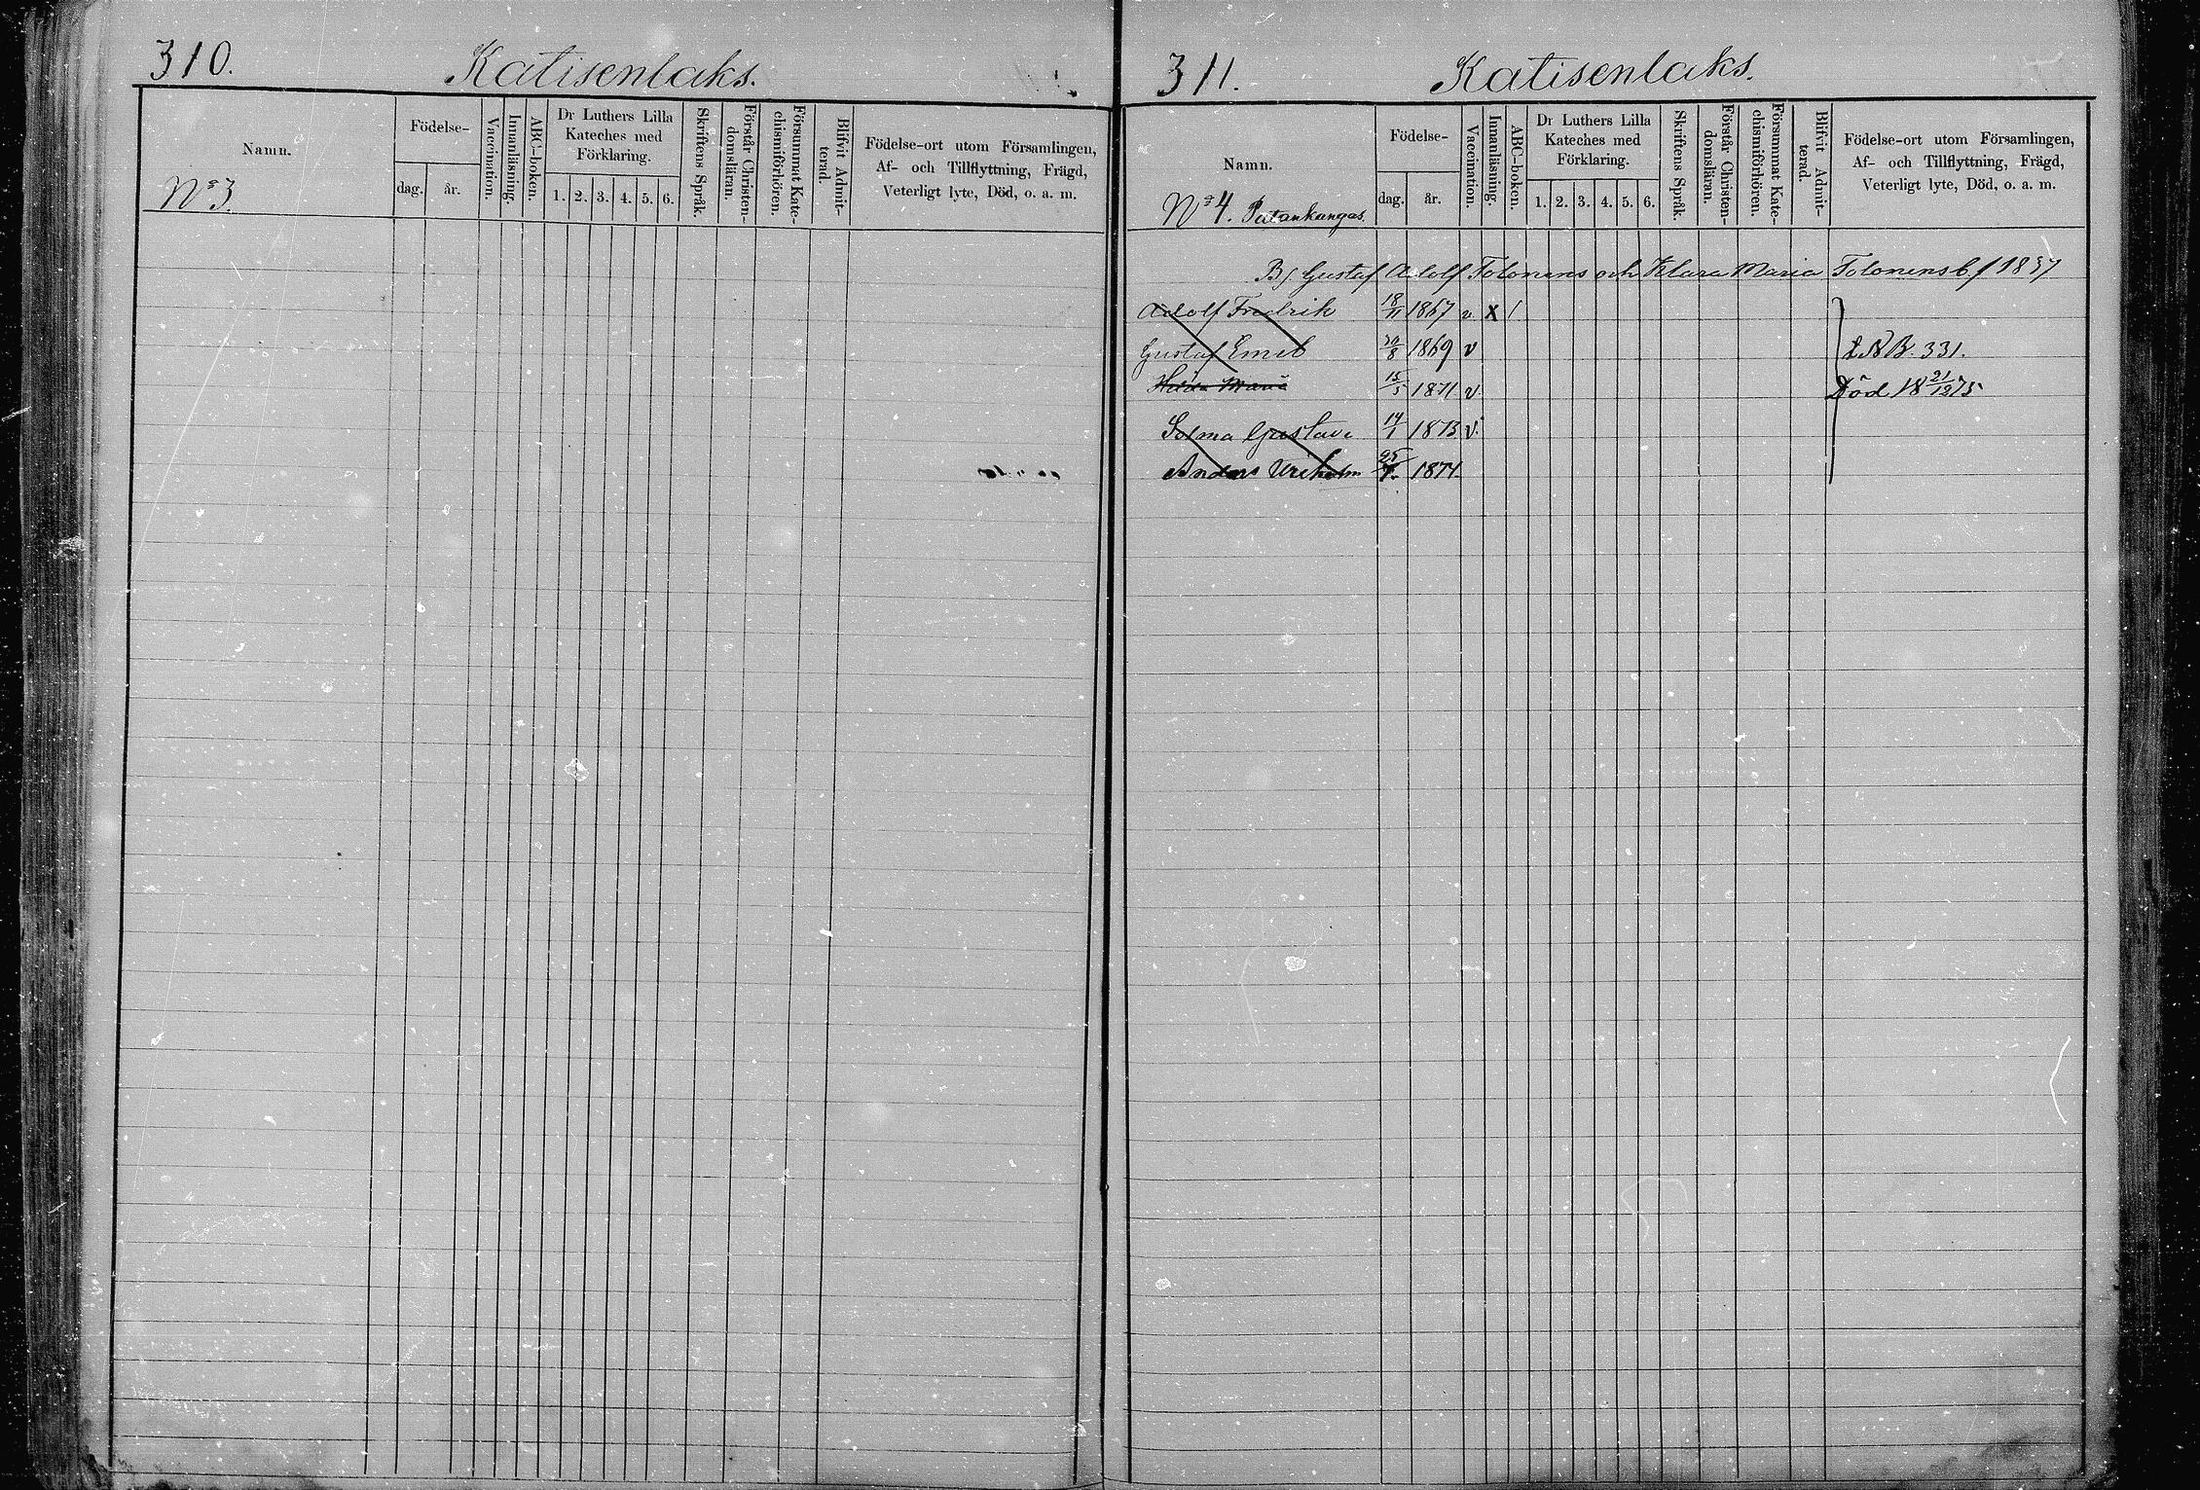 310.
Katisenlaks.
Namn.
Födelse-
dag. år.
Vaccination.
Innanläsning.
ABC-boken.
Dr Luthers Lilla
Kateches med
Förklaring.
1. 2. 3. 4. 5. 6.
Skriftens Språk.
Förstår Christen-
domsläran.
Försummat Kate-
chismiförhören.
Blifvit Admit-
terad.
Födelse-ort utom Församlingen,
Af- och Tillflyttning, Frägd,
Veterligt lyte, Död, o. a. m.
No 3.
311.
Katisenlaks.
Namn.
Födelse-
dag. år.
Vaccination.
Innanläsning.
ABC-boken.
Dr Luthers Lilla
Kateches med
Förklaring.
1. 2. 3. 4. 5. 6.
Skriftens Språk.
Förstår Christen-
domsläran.
Försummat Kate-
chismiförhören.
Blifvit Admit-
terad.
Födelse-ort utom Församlingen,
Af- och Tillflyttning, Frägd,
Veterligt lyte, Död, o. a. m.
No 4. Putankangas.
Bf Gustaf Adolf Tolonens och Klara Maria Tolonens b. f 1837
Adolf Fredrik 18/11 1867 v x /
Gustaf Emil 30/8 1869 v L N B. 331.
Hilda Maria 15/5 1871 v. Död 18 21/12 75
Selma Gustava 14/1 1873 v.
Anders Vilhelm 25/7. 1874.